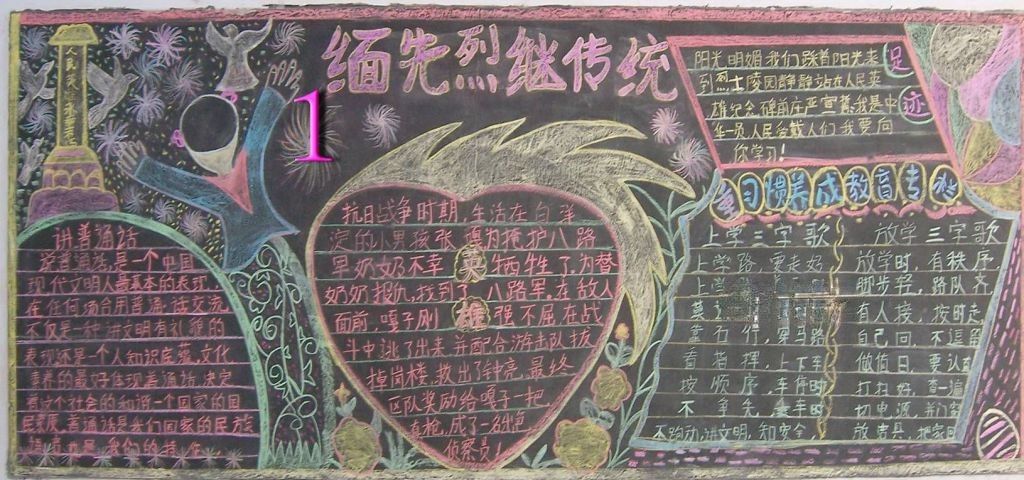 缅先烈继传统
1
人民英雄永垂不朽
讲普通话
说普通话,是一个中国
现代文明人最基本的表现,
在任何场合用普通话交流
不仅是一种讲文明有礼貌的
表现还是一个人知识底蕴,文化
素养的最好体现普通话,决定
着这个社会的和谐一个国家的国
民素质,普通话是我们国家的民族
语言也是 我们的特
抗日战争时期,生活在白洋
淀的小男孩张嘎为掩护八路
军奶奶不幸英牺牲了,为替
奶奶报仇,找到了八路军,在敌人
面前,嘎子刚雄强不屈在战
斗中逃了出来,并配合游击队拔
掉岗楼,救出了钟亮,最终
区队奖励给嘎子一把
真枪,成了一名出色
侦察员!
阳光明媚我们踏着阳光来
到烈士陵园静静站在人民英
雄纪念碑前庄严宣誓:我是中
华一员,人民爱戴人们,我要向
你学习!
足迹
习惯养成教育专栏
上学三字歌
上学路,要走好
上学
靠右行,穿马路
看指挥,上下车
按顺序,车停时
不争先,
不跑动,讲文明,知安全
放学三字歌
放学时,有秩序
脚步轻,路队齐
有人接,按时走
自己回,不逗留
做值日,要认真
打扫好,查一遍
切电源,并门窗
放书具,把家回